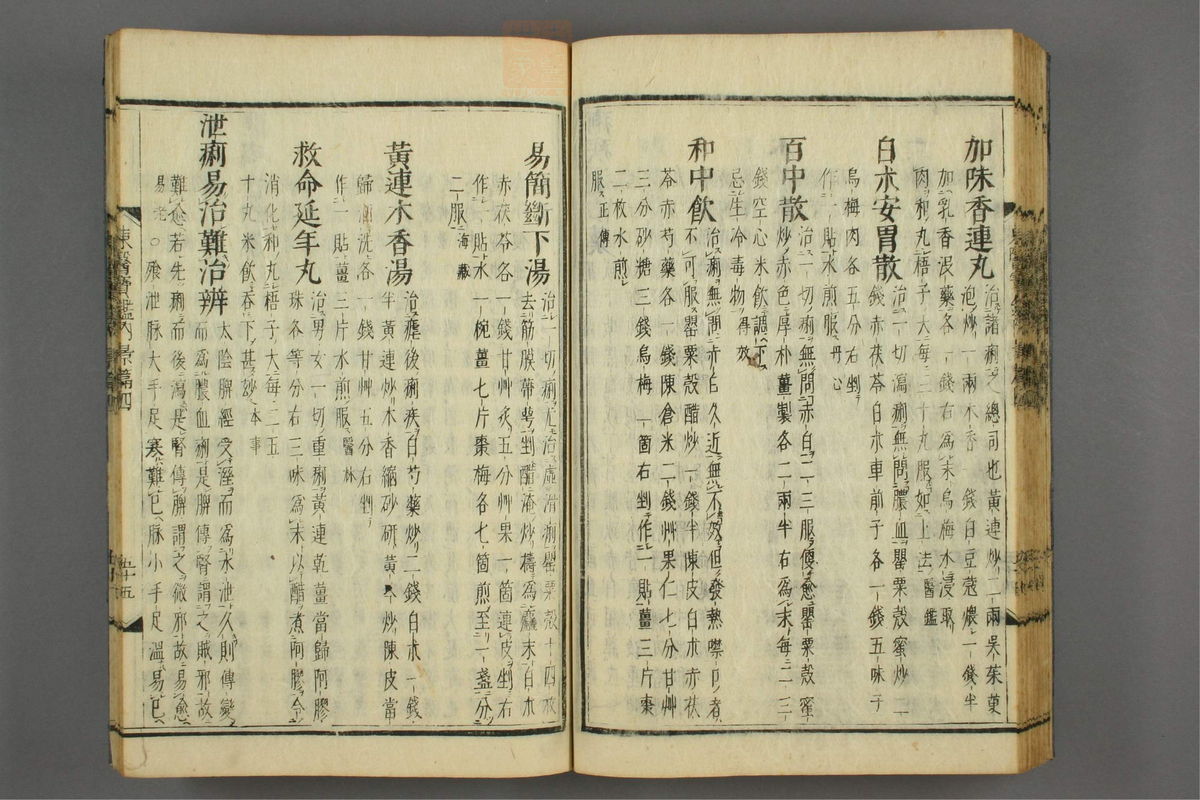 加味香連丸 治諸痢之總司也黃連炒二兩吳茱萸
泡炒一兩木香一錢白豆蔲煨一錢半
加乳香沒藥各一錢右爲末烏梅水浸取
肉和丸梧子大每三十丸服如上法醫鑑
白朮安胃散 治一切瀉痢無問膿血罌粟殼蜜炒二
錢赤茯苓白朮車前子各一錢五味子
烏梅肉各五分右剉
作一貼水煎服丹心
百中散 治一切痢無問赤白二三服便愈罌粟殼蜜
炒赤色厚朴薑製各二兩半右爲末每二三
錢空心米飮調下
忌生冷毒物得效
和中飮 治痢無問赤白久近無不效但發熱噤口者
不可服罌粟殼醋炒一錢半陳皮白朮赤茯
苓赤芍藥各一錢陳倉米二錢艸果仁七分甘艸
三分砂糖三錢烏梅一箇右剉作一貼薑三片棗
二枚水煎
服正傳
易簡斷下湯 治一切痢尤治虛滑痢罌粟殼十四枚
去筋膜帶萼剉醋淹炒擣爲麤末白朮
赤茯苓各一錢甘艸灸五分艸果一箇連皮剉右
作一貼水一椀薑七片棗梅各七箇煎至一盞分
二服海藏
黃連木香湯 治瘧後痢疾白芍藥炒二錢白朮一錢
半黃連炒木香縮砂研黃炒陳皮當
歸酒洗各一錢甘艸五分右剉
作一貼薑三片水煎服醫林
救命延年丸 治男女一切重痢黃連乾薑當歸阿膠
珠各等分右三味爲末以醋煮阿膠令
消化和丸梧子大每二五
十丸米飮呑下甚妙本事
泄痢易治難治辨 太陰脾經受溼而爲水泄久則傳變
而爲膿血痢是脾傳腎謂之賊邪故
難愈若先痢而後瀉是腎傳脾謂之微邪故易愈
易老○飱泄脉大手足寒難已脉小手足溫易已
東醫寶鑑內景篇四
五十五